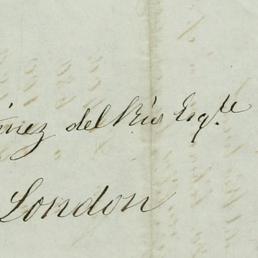 ínez del Río Esqre
London